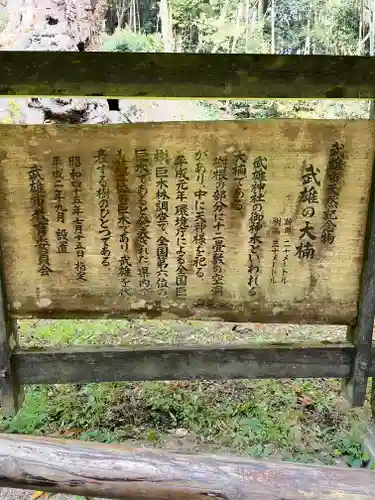 武雄市天然記念物
武雄の大楠
幹周 二十メートル
樹高 三十メートル
武雄神社の御神木といわれる
大楠である。
樹根の部分に十二畳敷の空洞
があり、中に天神様を祀る。
平成元年環境庁による全国巨
樹・巨木調査で、全国第六位の
巨木であるとみなされた。県内
巨木であり、武雄を代
表する樹のひとつである。
昭和四十五年七月十五日 指定
平成二年九月 設置
武雄市教育委員会